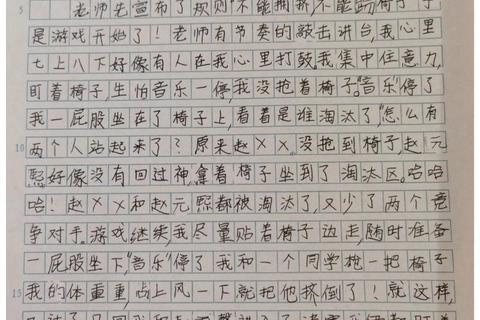 5
老师先宣布了规则“不能拥挤,不能动椅子”于
是游戏开始了！老师有节奏的敲击讲台,我心里
七上八下好像有人在我心里打鼓。我集中住意力,
盯着椅子,生怕音乐一停,我没抢着椅子。“音乐”停了
我一屁股坐在了椅子上,看着是谁淘汰了“怎么有
10 两个人站起来了？原来赵××。没抢到椅子,赵元
熙好像没有回过神,拿着椅子坐到了淘汰区。哈哈
哈！赵××和赵元熙都被淘汰了,又少了两个竞
争对手。游戏继续,我尽量贴着椅子边走,随时准备
一屁股坐下,“音乐”停了我和一个同学枪一把椅子
15 我的体重重,占上风一下就把他挤倒了！就这样,